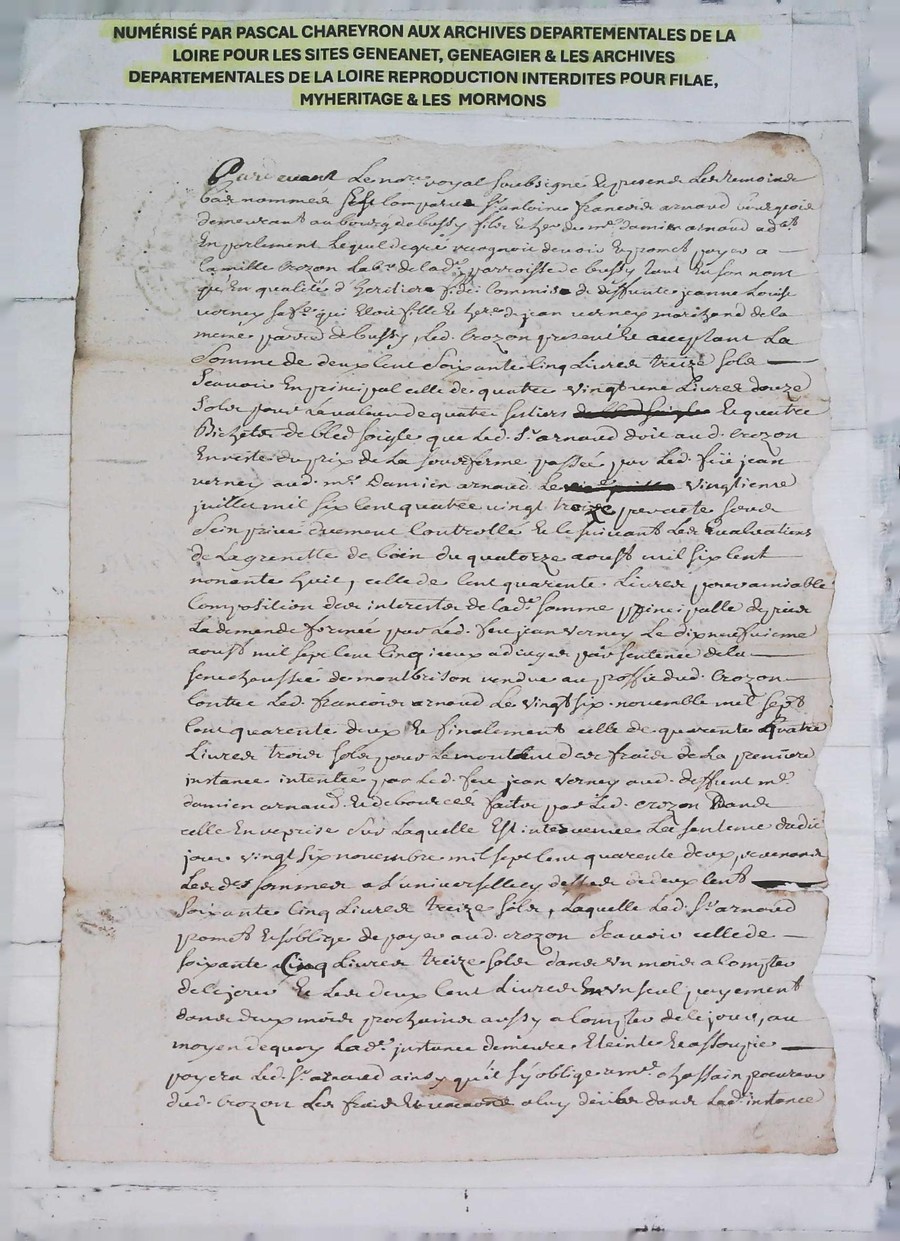 NUMÉRISÉ PAR PASCAL CHAREYRON AUX ARCHIVES DEPARTEMENTALES DE LA
LOIRE POUR LES SITES GENEANET, GENEAGIER & LES ARCHIVES
DEPARTEMENTALES DE LA LOIRE REPRODUCTION INTERDITES POUR FILAE,
MYHERITAGE & LES MORMONS
Pardevant Le nore royal soubsigné Et presens Les temoins
bas nommés sest comparu sr antoine francois arnaud bourgeois
demeurant au bourg de bussy fils et her du me damien arnaud adat
En parlement Lequel de gré recognoit devoir Et promet payer a
camille Crozon Labr de lade parroisse de bussy tant En son nom
qu En qualité d'heritiere fidei Commise de deffunte jeanne Louise
verney sa fe qui Etoit fille Et here de jean verney marchand de la
meme parre de bussy, Led. Crozon presente acceptant La
Somme de deux Cent Soixante Cinq Livres treize sols
Scavoir En principal celle de quatre vingt une Livres douze
Sols pour la valeur de quatre setiers Et quatre
Bichets de bled soigle que Led. Sr arnaud doit aud. Crozon
En reste du prix de La sousferme passée par Led. feu jean
verney aud. me Damien arnaud Le vingtieme
juillet mil six Cent quatre vingt treize
Sein privé duement Controllé Et le suivant Les Evaluations
de La grenette de du quatorze aoust mil six Cent
nonante huit, celle de Cent quarente Livres pour amiable
Composition des interests de lade somme principalle depuis
La demande formée par Led. feu jean verney Le dix neufvieme
aoust mil sept Cent Cinq iceux adjuges par sentence de la
senechaussée de montbrison rendue au proffit dud. Crozon
Contre Led. francois arnaud Le vingt six novembre mil sept
Cent quarente deux Et finalement celle de quarente quatre
Livres trois sols pour Le montant des frais de La premiere
instance intentée par Led. feu jean verney aud. deffunt me
damien arnaud Et debourcés faits par Led. Crozon Dans
celle En reprise sur Laquelle Est intervenue La sentence dudit
jour vingt six novembre mil sept Cent quarente deux, revenans
Lesdes sommes a L'universelle de deux Cent
Soixante Cinq Livres treize sols, Laquelle Led. Sr arnaud
promet Et s'oblige de payer aud. Crozon Scavoir celle de
soixante Cinq Livres treize sols dans un mois a Compter
de ce jour Et Les deux Cent Livres En un seul payement
dans deux mois prochains aussy a Compter de ce jour, au
moyen de quoy Lade instance demeure Eteinte Et assoupie
payera Led. Sr arnaud ainsy qu'il s'y oblige a me chassain procureur
dud. Crozon Les frais Et vacaons a luy deubs dans Lade instance